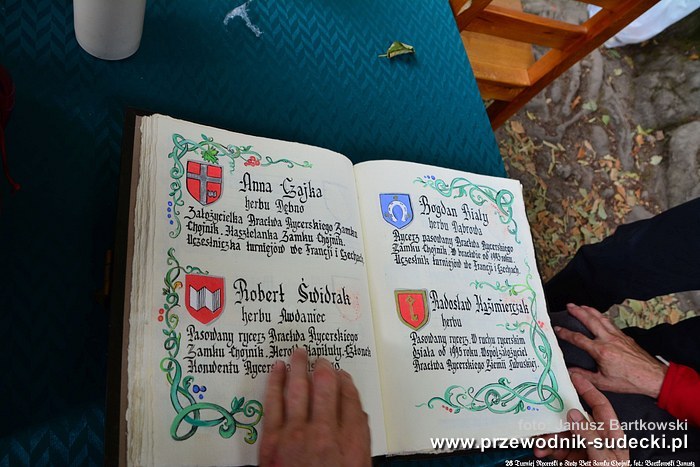 Anna Czajka
herbu Dębno
Założycielka Bractwa Rycerskiego Zamku
Chojnik, Kasztelanka Zamku Chojnik.
Uczestniczka turniejów we Francji i Czechach
Robert Świdrak
herbu Awdaniec
Pasowany rycerz Bractwa Rycerskiego
Zamku Chojnik, Herold Kapituły, Członek
Konwentu
Bogdan Biały
herbu Dąbrowa
Rycerz pasowany Bractwa Rycerskiego
Zamku Chojnik. W bractwie od 1995 roku.
Uczestnik turniejów we Francji i Czechach
Radosław Kaźmierczak
herbu
Pasowany rycerz. W ruchu rycerskim
działa od 1995 roku. Współzałożyciel
Bractwa Rycerskiego Ziemi Lubuskiej.
foto: Janusz Bartkowski
www.przewodnik-sudecki.pl
26 Turniej Rycerski o Złoty Bełt Zamku Chojnik, fot. Bartkowski Janusz